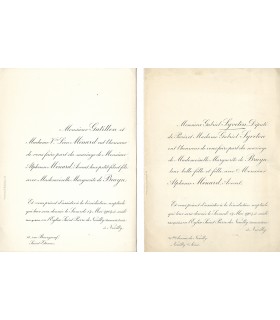 Monsieur Gatillon et
Madame Vve Léon Menard ont l'honneur
de vous faire part du mariage de Monsieur
Alphonse Menard leur petit-fils et fils
avec Mademoiselle Marguerite de Bruyn
Et vous prient d'assister à la bénédiction nuptiale
qui leur sera donnée le Samedi 14 Mai
en l'Eglise Saint Pierre de Neuilly
à Neuilly
Saint-Etienne
Monsieur Gabriel Syveton Député
de Paris et Madame Gabriel Syveton
ont l'honneur de vous faire part du mariage
de Mademoiselle Marguerite de Bruyn
leur belle fille et fille avec Monsieur
Alphonse Menard Avocat
Et vous prient d'assister à la bénédiction nuptiale
qui leur sera donnée le Samedi 14 Mai
en l'Eglise Saint Pierre de Neuilly
à Neuilly
de Neuilly
Neuilly s/ Seine